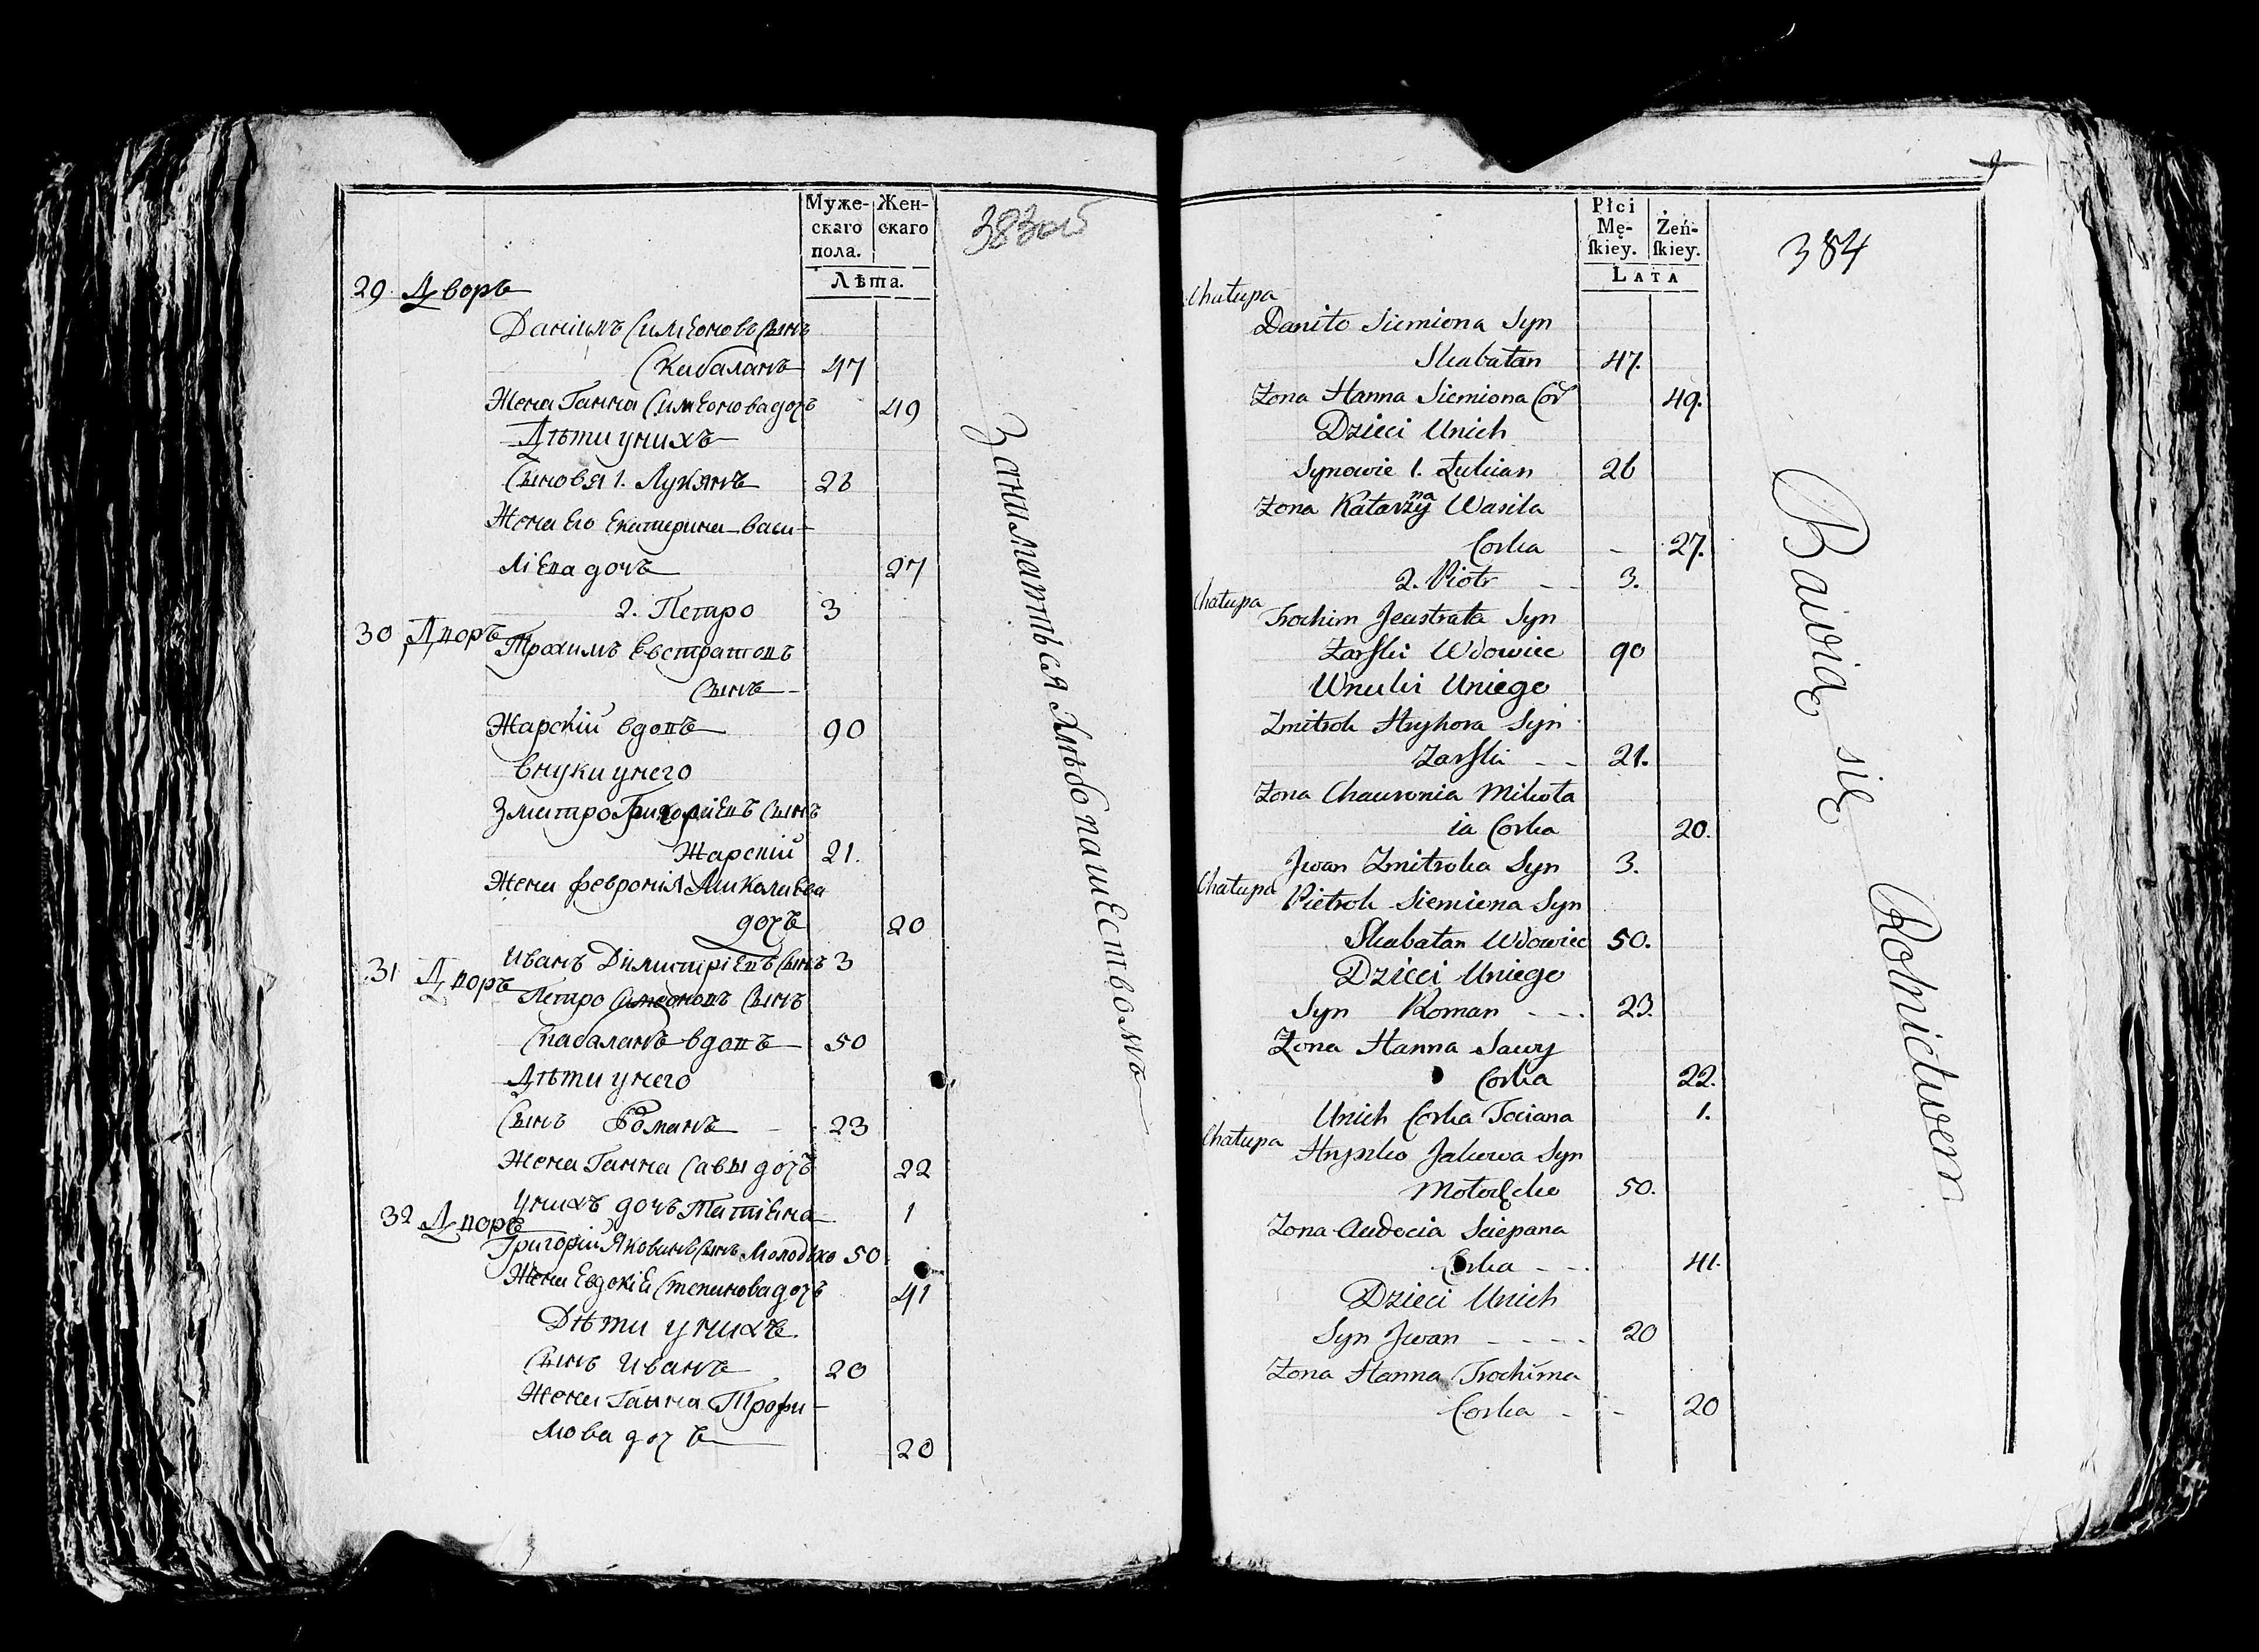 Муже-
скаго
пола.
Жен-
скаго
Лѣта.
383об
29 Дворъ
Данiилъ Симеоновъ Сынъ
Скабаланъ 47
Жена Ганна Симеонова дочъ 49
Дѣти унихъ
Сыновья 1. Лукянъ 26
Жена Его Екатерина Васи-
лiева дочъ 27
2. Петро 3
30 Дворъ
Трохимъ Евстратовъ
Сынъ
Жарскiй вдовъ 90
Внуки унего
Змитро Григорiевъ Сынъ
Жарскiй 21.
Жена Феврониiя Миколаева
дочъ 20
Иванъ Димитрiевъ Сынъ 3
31 Дворъ
Петро Симеоновъ Сынъ
Скабаланъ вдовъ 50
Дѣти унего
Сынъ Романъ 23
Жена Ганна Савы дочъ 22
Унихъ дочъ Татiана 1
32 Дворъ
Григорiй Яковлевъ Сынъ Молодъко 50
Жена Евдокiя Степанова дочъ 41
Дѣти унихъ
Сынъ Иванъ 20
Жена Ганна Трофи-
мова дочъ 20
Заниматъся Хлѣбопашествомъ
Płci
Mę-
ſkiey.
Żeń-
ſkiey.
LATA
384
Chałupa
Daniło Siemiona Syn
Skabałan 47.
Żona Hanna Siemiona Cor 49.
Dzieci Unich
Synowie 1. Łukian 26
Żona Katarzyna Wasila
Corka - 27.
2. Piotr - - 3.
Chałupa
Trochim Jeustrata Syn
Żarſki Wdowiec 90
Wnuki Uniego
Zmitrok Hryhora Syn
Żarſki - - 21.
Żona Chauronia Mikoła
ia Corka 20.
Jwan Zmitroka Syn 3.
Chałupa
Pietrok Siemiena Syn
Skabałan Wdowiec 50.
Dzieci Uniego
Syn Roman - - . 23.
Żona Hanna Sawy
Corka 22.
Unich Corka Taciana 1.
Chałupa
Hryszko Jakowa Syn
Mołodźko 50.
Żona Audocia Sciepana
Corka - - . 41.
Dzieci Unich
Syn Jwan - - - - . 20
Żona Hanna Trochima
Corka - - 20
Bawią się Rolnictwem